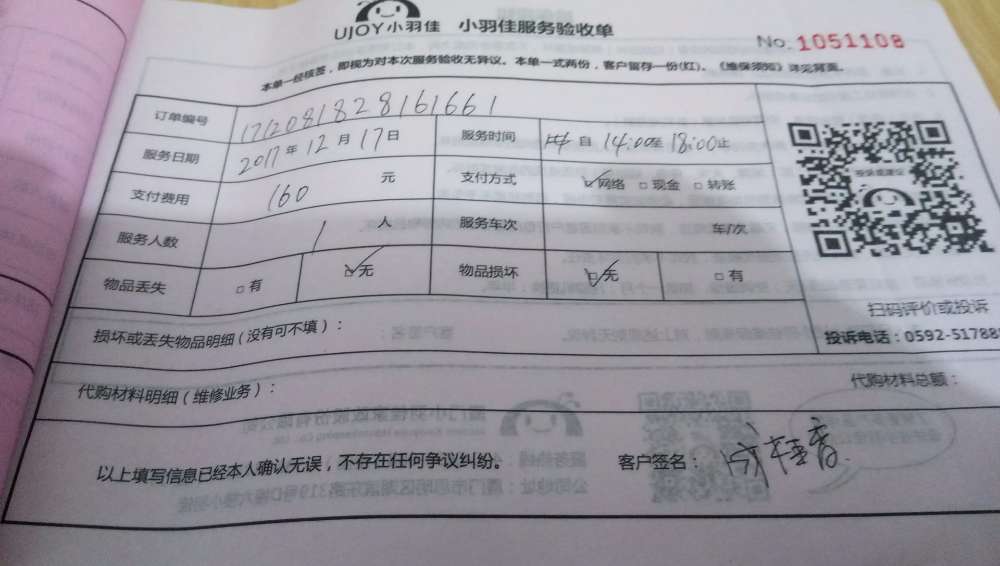 UJOY小羽佳 小羽佳服务验收单
No. 1051108
本单一经核签，即视为对本次服务验收无异议。本单一式两份，客户留存一份(红)。《维保须知》详见背面。
订单编号 1712081828161661
服务日期 2017年12月17日 服务时间 自 14:00至 18:00止
支付费用 160 元 支付方式 ☑网络 □现金 □转账
服务人数 1 人 服务车次 车/次
物品丢失 □有 ☑无 物品损坏 ☑无 □有
投诉或建议
扫码评价或投诉
投诉电话：0592-51788
损坏或丢失物品明细（没有可不填）：
代购材料明细（维修业务）：
代购材料总额：
以上填写信息已经本人确认无误，不存在任何争议纠纷。 客户签名：